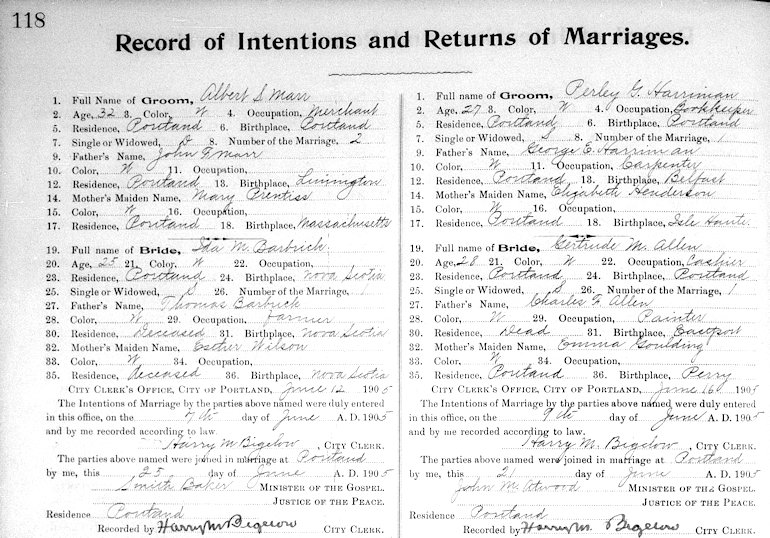 118
Record of Intentions and Returns of Marriages.
1. Full Name of Groom, Albert S Marr
2. Age, 32 3. Color, W 4. Occupation, Merchant
5. Residence, Portland 6. Birthplace, Portland
7. Single or Widowed, D 8. Number of the Marriage, 2
9. Father's Name, John F Marr
10. Color, W 11. Occupation,
12. Residence, Portland 13. Birthplace, Limington
14. Mother's Maiden Name, Mary Prentiss
15. Color, W 16. Occupation,
17. Residence, Portland 18. Birthplace, Massachusetts
19. Full name of Bride, Ida M. Barbrick
20. Age, 25 21. Color, W 22. Occupation,
23. Residence, Portland 24. Birthplace, Nova Scotia
25. Single or Widowed, S 26. Number of the Marriage, 1
27. Father's Name, Thomas Barbrick
28. Color, W 29. Occupation, Farmer
30. Residence, Deceased 31. Birthplace, Nova Scotia
32. Mother's Maiden Name, Esther Wilson
33. Color, W 34. Occupation,
35. Residence, Deceased 36. Birthplace, Nova Scotia
CITY CLERK'S OFFICE, CITY OF PORTLAND, June 12 1905
The Intentions of Marriage by the parties above named were duly entered
in this office, on the 7th day of June A. D. 1905
and by me recorded according to law.
Harry M Bigelow, CITY CLERK.
The parties above named were joined in marriage at Portland
by me, this 25 day of June A. D. 1905
Baker MINISTER OF THE GOSPEL.
JUSTICE OF THE PEACE.
Residence Portland
Recorded by Harry M Bigelow CITY CLERK.
1. Full name of Groom, Perley G. Harriman
2. Age, 27 3. Color, W 4. Occupation, Bookkeeper
5. Residence, Portland 6. Birthplace, Portland
7. Single or Widowed, S 8. Number of the Marriage, 1
9. Father's Name, George E. Harriman
10. Color, W 11. Occupation, Carpenter
12. Residence, Portland 13. Birthplace, Belfast
14. Mother's Maiden Name, Elizabeth Henderson
15. Color, W 16. Occupation,
17. Residence, Portland 18. Birthplace, Isle Haute
19. Full name of Bride, Gertrude M. Allen
20. Age, 28 21. Color, W 22. Occupation, Cashier
23. Residence, Portland 24. Birthplace, Portland
25. Single or Widowed, S 26. Number of the Marriage, 1
27. Father's Name, Charles F. Allen
28. Color, W 29. Occupation, Painter
30. Residence, Dead 31. Birthplace, Eastport
32. Mother's Maiden Name, Emma Goulding
33. Color, W 34. Occupation,
35. Residence, Portland 36. Birthplace, Perry
CITY CLERK'S OFFICE, CITY OF PORTLAND, June 16 1905
The Intentions of Marriage by the parties above named were duly entered
in this office, on the 9th day of June A. D. 1905
and by me recorded according to law.
Harry M. Bigelow, CITY CLERK.
The parties above named were joined in marriage at Portland
by me, this 21 day of June A. D. 1905
John M. Atwood MINISTER OF THE GOSPEL.
JUSTICE OF THE PEACE.
Residence Portland
Recorded by Harry M. Bigelow CITY CLERK.